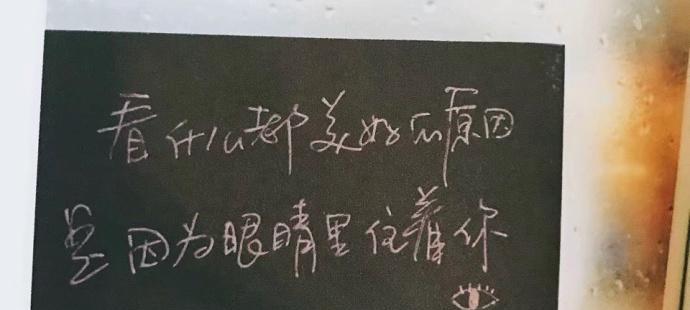 看什么都美好的原因
是因为眼睛里住着你